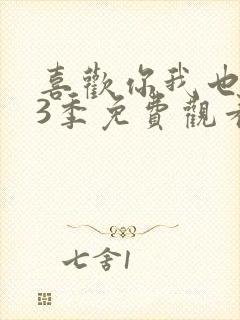 喜歡你我也
3季免費觀看
七舍1